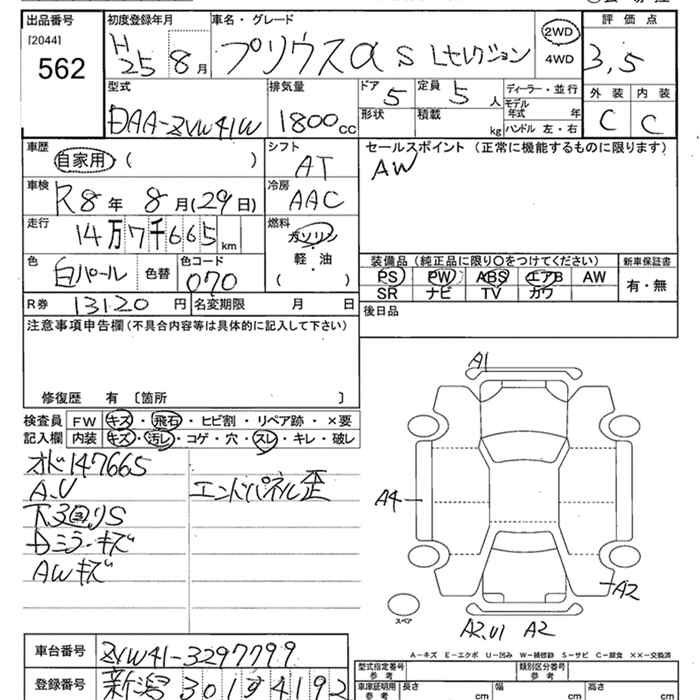 出品番号 初度登録年月 車名・グレード 評価点
[2044] 562 H25 8月 プリウスα S Lセレクション 2WD 4WD 3,5
外装 内装
C C
型式 排気量 ドア 5 定員 5人 ディーラー・並行
DAA-ZVW41W 1800cc 形状 積載 kg モデル年式 年 ハンドル 左・右
車歴 シフト セールスポイント (正常に機能するものに限ります)
自家用 ( ) AT AW
車検 R8年 8月(29日) 冷房 AAC
走行 14万7千665km 燃料 ガソリン・軽・油 ( )
色 白パール 色替 色コード 070
装備品 (純正品に限り〇をつけてください) 新車保証書
PS PW ABS エアB AW 有・無
SR ナビ TV カワ
R券 13120円 名変期限 月 日 後日品
注意事項申告欄 (不具合内容等は具体的に記入して下さい)
修復歴 有 〔箇所 〕
検査員 FW キズ・飛石・ヒビ割・リペア跡・×要
記入欄 内装 キズ・汚レ・コゲ・穴・スレ・キレ・破レ
オド147665
A.U エンドパネル歪
下廻りS
Dミラーキズ
AWキズ
A1
A4
A2
A2,U1 A2
スペア
A-キズ E-エクボ U-凹み W-補修跡 S-サビ C-腐食 ××-交換済
車台番号 ZVW41-3297799
型式指定番号 参考 類別区分番号 参考
登録番号 新潟 301す4192
車庫証明用 参考 長さ cm 幅 cm 高さ cm